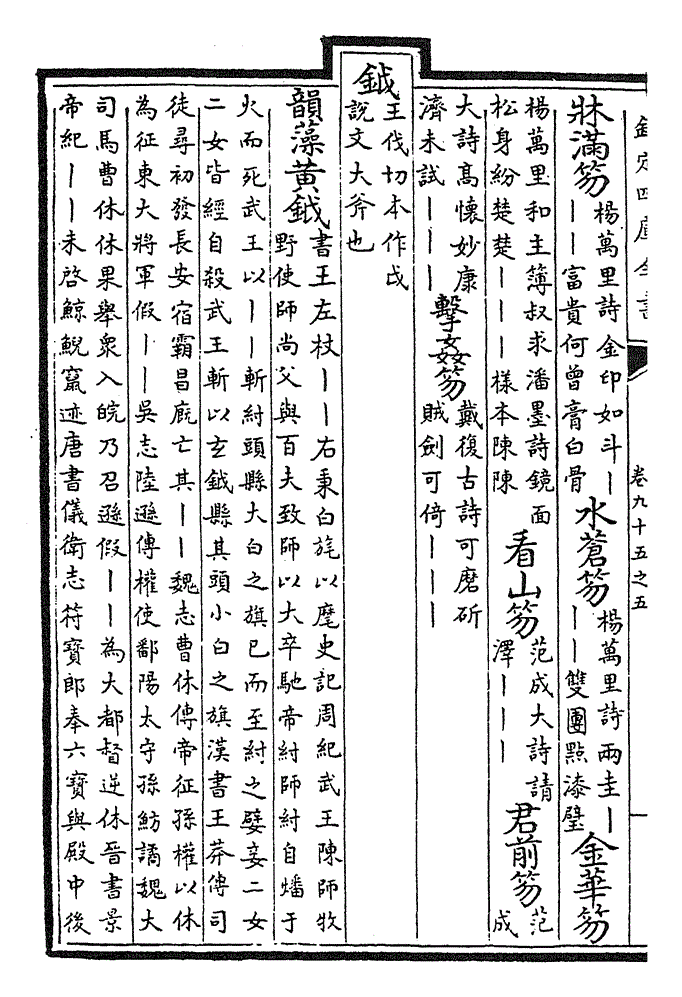 欽定四庫全書 卷九十五之五 一
牀滿笏 楊萬里詩金印如斗丨
丨丨富貴何曾膏白骨
水蒼笏 楊萬里詩兩圭丨
丨丨雙團點漆璧
金華笏
楊萬里和主簿叔求潘墨詩鏡面
松身紛楚楚丨丨丨樣本陳陳
看山笏 范成大詩請
澤丨丨丨
君前笏 范
成
大詩髙懷妙康
濟未試丨丨丨
擊姦笏 戴復古詩可磨斫
賊劍可倚丨丨丨
鉞
王伐切本作戉
說文大斧也
韻藻黃鉞 書王左杖丨丨右秉白旄以麾史記周紀武王陳師牧
野使師尚父與百夫致師以大卒馳帝紂師紂自燔于
火而死武王以丨丨斬紂頭縣大白之旗已而至紂之嬖妾二女
二女皆經自殺武王斬以玄鉞縣其頭小白之旗漢書王莽傳司
徒尋初發長安宿霸昌廐亡其丨丨魏志曹休傳帝征孫權以休
為征東大將軍假丨丨吳志陸遜傳權使鄱陽太守孫魴譎魏大
司馬曹休休果舉衆入皖乃召遜假丨丨為大都督逆休晉書景
帝紀丨丨未啓鯨鯢竄迹唐書儀衛志符寶郎奉六寶與殿中後